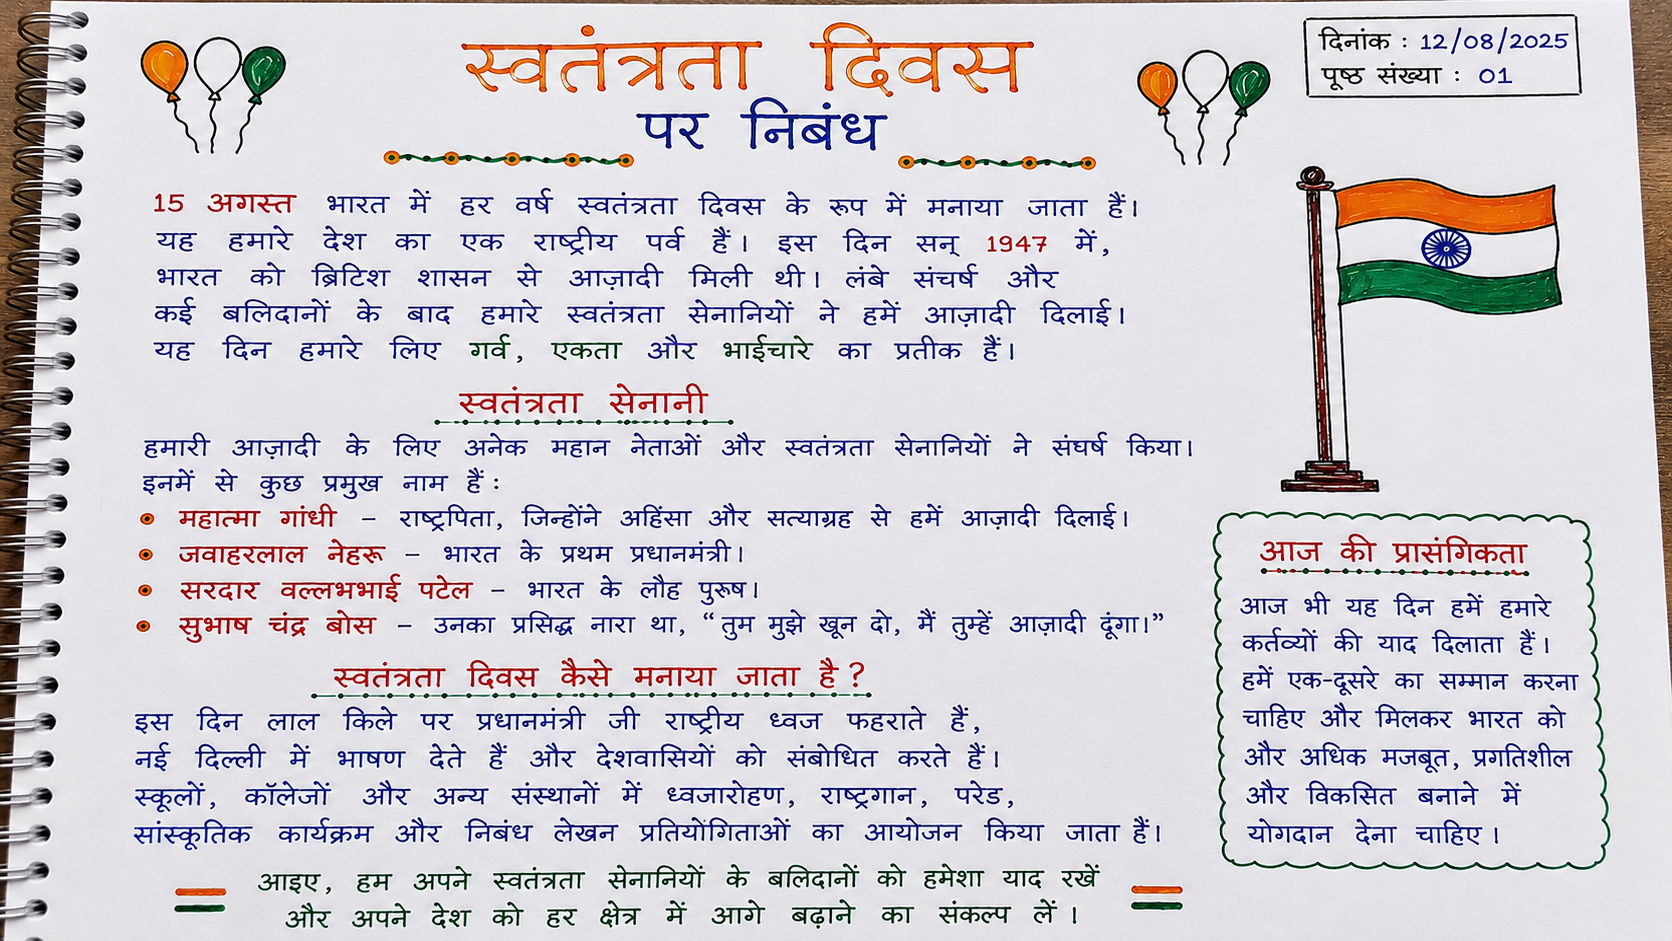 स्वतंत्रता दिवस
पर निबंध
दिनांक : 12/08/2025
पृष्ठ संख्या : 01
15 अगस्त भारत में हर वर्ष स्वतंत्रता दिवस के रूप में मनाया जाता हैं।
यह हमारे देश का एक राष्ट्रीय पर्व हैं। इस दिन सन् 1947 में,
भारत को ब्रिटिश शासन से आज़ादी मिली थी। लंबे संचर्ष और
कई बलिदानों के बाद हमारे स्वतंत्रता सेनानियों ने हमें आज़ादी दिलाई।
यह दिन हमारे लिए गर्व, एकता और भाईचारे का प्रतीक हैं।
स्वतंत्रता सेनानी
हमारी आज़ादी के लिए अनेक महान नेताओं और स्वतंत्रता सेनानियों ने संघर्ष किया।
इनमें से कुछ प्रमुख नाम हैं :
महात्मा गांधी – राष्ट्रपिता, जिन्होंने अहिंसा और सत्याग्रह से हमें आज़ादी दिलाई।
जवाहरलाल नेहरू – भारत के प्रथम प्रधानमंत्री।
सरदार वल्लभभाई पटेल – भारत के लौह पुरुष।
सुभाष चंद्र बोस – उनका प्रसिद्ध नारा था, “तुम मुझे खून दो, मैं तुम्हें आज़ादी दूंगा।”
स्वतंत्रता दिवस कैसे मनाया जाता है ?
इस दिन लाल किले पर प्रधानमंत्री जी राष्ट्रीय ध्वज फहराते हैं,
नई दिल्ली में भाषण देते हैं और देशवासियों को संबोधित करते हैं।
स्कूलों, कॉलेजों और अन्य संस्थानों में ध्वजारोहण, राष्ट्रगान, परेड,
सांस्कृतिक कार्यक्रम और निबंध लेखन प्रतियोगिताओं का आयोजन किया जाता हैं।
आइए, हम अपने स्वतंत्रता सेनानियों के बलिदानों को हमेशा याद रखें
और अपने देश को हर क्षेत्र में आगे बढ़ाने का संकल्प लें।
आज की प्रासंगिकता
आज भी यह दिन हमें हमारे
कर्तव्यों की याद दिलाता हैं।
हमें एक-दूसरे का सम्मान करना
चाहिए और मिलकर भारत को
और अधिक मजबूत, प्रगतिशील
और विकसित बनाने में
योगदान देना चाहिए।